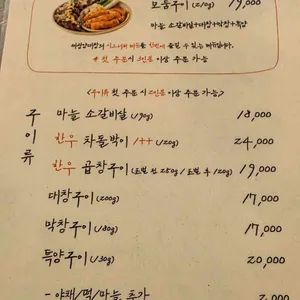 모둠구이 (420g) 79,000
마늘 소갈비살+대창+막창+특양
# 첫 주문시 2인분 이상 주문 가능
<구이류 첫 주문시 2인분 이상 주문 가능>
구이류
마늘 소갈비살 (190g) 18,000
한우 차돌박이 1++ (120g) 24,000
한우 곱창구이 (초벌 전 250g / 초벌 후 120g) 19,000
대창구이 (200g) 17,000
막창구이 (180g) 17,000
특양구이 (130g) 20,000
- 야채/떡/마늘 추가